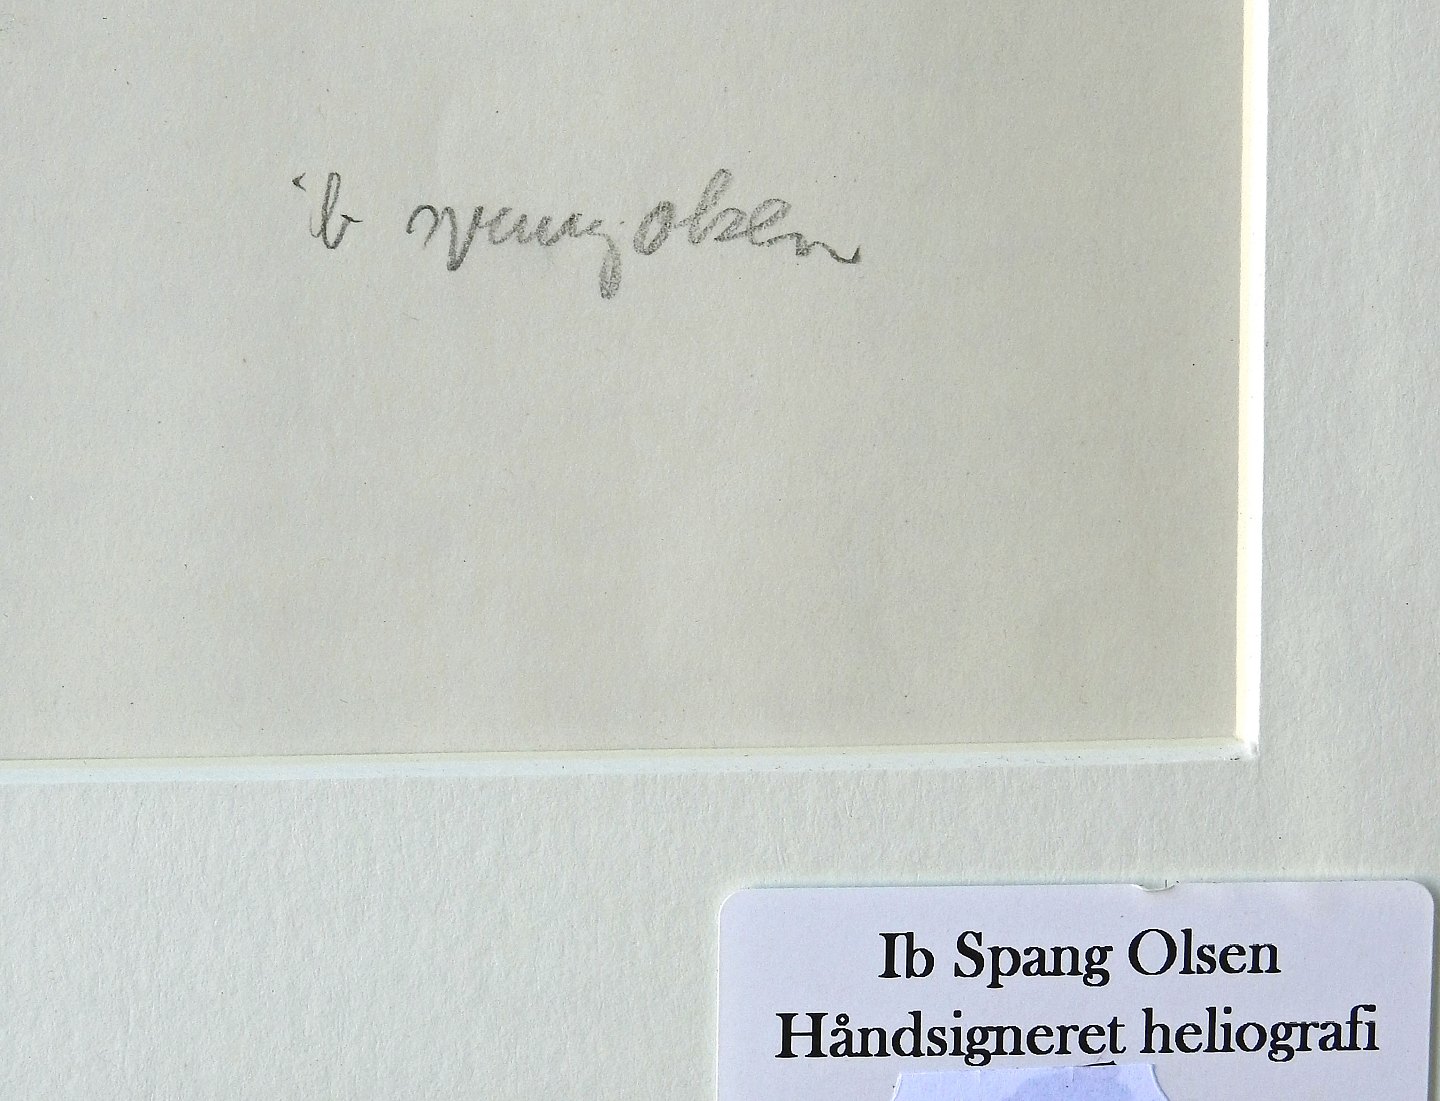 ib spang olsen
Ib Spang Olsen
Håndsigneret heliografi